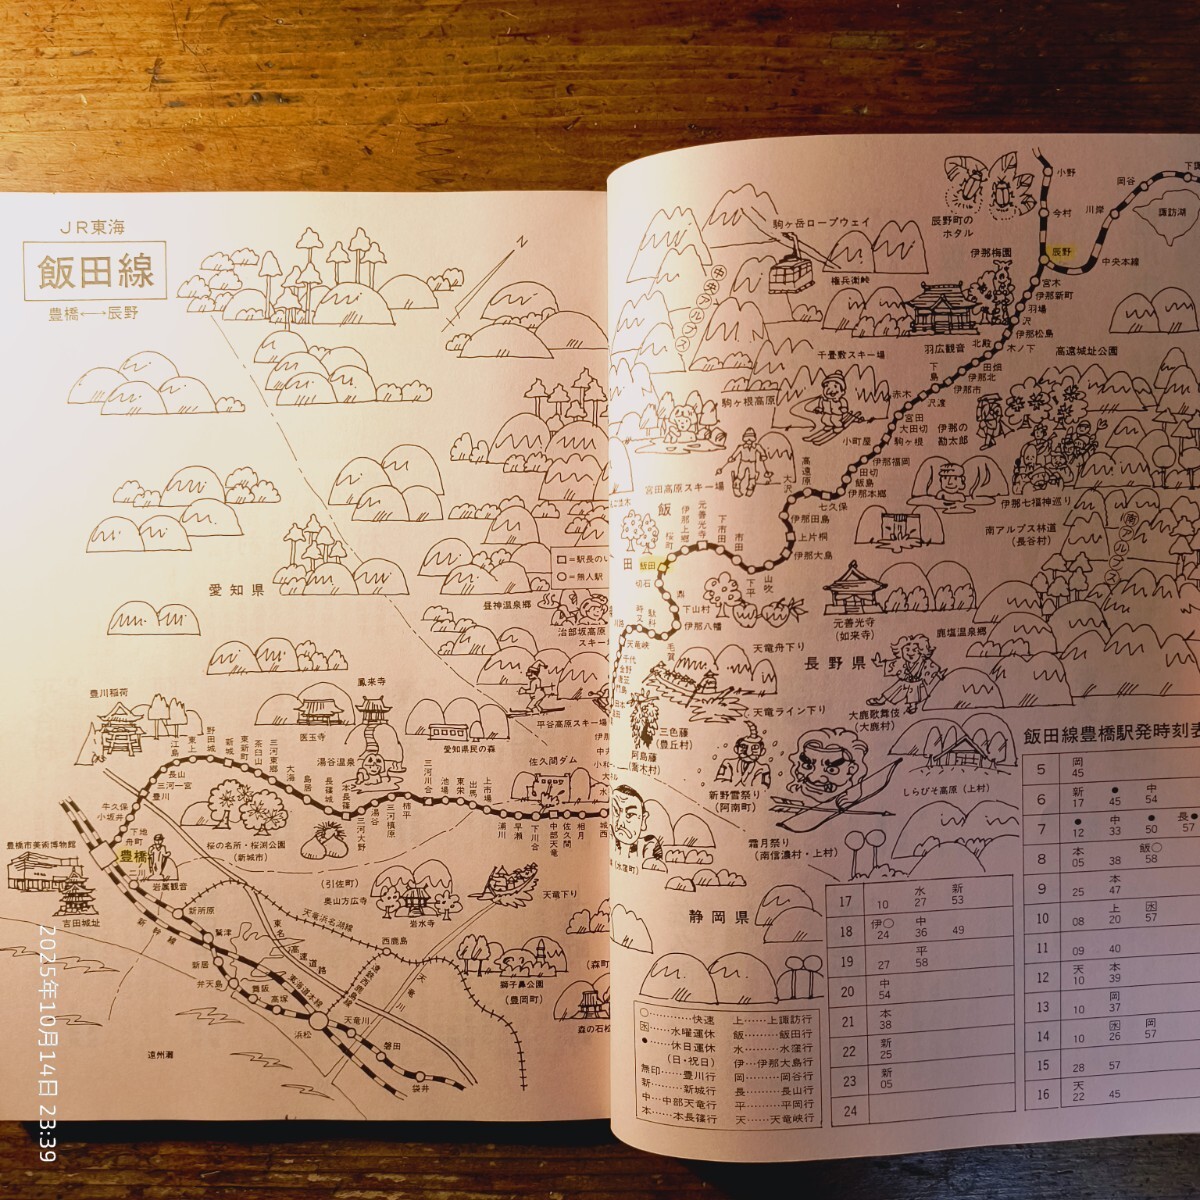 JR東海
飯田線
豊橋←→辰野
N
愛知県
□=駅長のい
○=無人駅
昼神温泉郷
治部坂高原
スキー場
平谷高原スキー場
豊川稲荷
鳳来寺
医王寺
湯谷温泉
愛知県民の森
佐久間ダム
江島
東上
野田城
新城
東新町
茶臼山
三河東郷
大海
鳥居
長篠城
本長篠
三河大野
湯谷
三河槙原
柿平
三河川合
池場
東栄
出馬
上市場
浦川
早瀬
下川合
中部天竜
佐久間
相月
城西
長山
三河一宮
豊川
牛久保
小坂井
下地
舟町
豊橋
二川
豊橋市美術博物館
吉田城址
岩屋観音
桜の名所・桜渕公園
(新城市)
(引佐町)
奥山方広寺
岩水寺
天竜下り
天竜浜名湖線
西鹿島
天竜川
獅子鼻公園
(豊岡町)
(森町)
森の石松
新所原
鷲津
新居
弁天島
舞阪
高塚
浜松
天竜川
磐田
袋井
新幹線
東名高速道路
東海道本線
遠州灘
小野
今村
辰野
川岸
岡谷
下諏
諏訪湖
中央本線
辰野町の
ホタル
駒ヶ岳ロープウェイ
中央アルプス
権兵衛峠
伊那梅園
羽広観音
宮木
伊那新町
羽場
沢
伊那松島
木ノ下
北殿
田畑
伊那北
伊那市
下島
沢渡
赤木
宮田
大田切
駒ヶ根
小町屋
伊那福岡
田切
飯島
伊那本郷
七久保
高遠原
大沢
伊那田島
上片桐
伊那大島
山吹
下平
市田
下市田
元善光寺
伊那上郷
桜町
飯田
飯田
切石
鼎
下山村
伊那八幡
毛賀
駄科
時又
川路
天竜峡
千代
金野
高遠城址公園
千畳敷スキー場
駒ヶ根高原
伊那の
勘太郎
宮田高原スキー場
伊那七福神巡り
南アルプス林道
(長谷村)
南アルプス
元善光寺
(如来寺)
鹿塩温泉郷
天竜舟下り
長野県
天竜ライン下り
大鹿歌舞伎
(大鹿村)
三色藤
(豊丘村)
阿島藤
(喬木村)
新野雪祭り
(阿南町)
しらびそ高原(上村)
霜月祭り
(南信濃村・上村)
(水窪町)
静岡県
飯田線豊橋駅発時刻表
5 岡45
6 新17 ●45 中54
7 ●12 中33 ●50 長●57
8 本05 38 飯○58
9 25 本47
10 08 上20 困57
11 09 40
12 天10 本39
13 10 岡37
14 10 困26 岡57
15 28 57
16 天22 45
17 10 水27 新53
18 伊○24 中36 49
19 27 平58
20 中54
21 本38
22 新25
23 新05
24
○………快速
困……水曜運休
●……休日運休
(日・祝日)
無印……豊川行
新………新城行
中…中部天竜行
本……本長篠行
上……上諏訪行
飯………飯田行
水………水窪行
伊…伊那大島行
岡………岡谷行
長………長山行
平………平岡行
天……天竜峡行
2025年10月14日 23:39